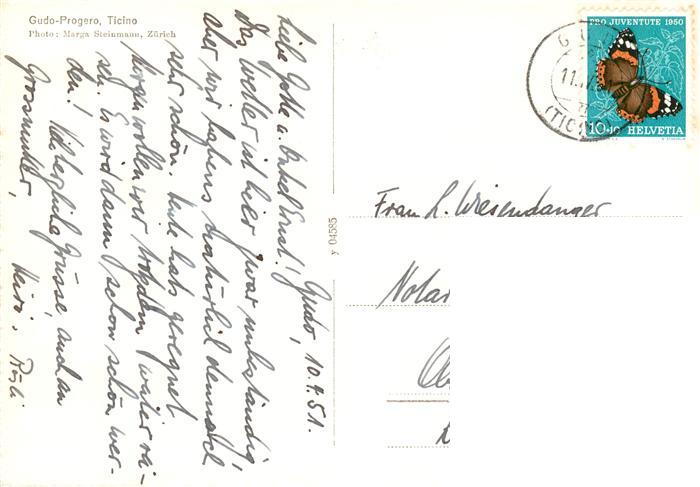 Gudo-Progero, Ticino
Photo: Marga Steinmann, Zürich
Gudo, 10.4.51.
Liebe Gotte u. Onkel Ernst!
Das Wetter ist hier zwar unbeständig,
aber wir habens natürlich dennoch
sehr schön. Heute hats geregnet.
Morgen wollen wir trotzdem weiter rei-
sen. Es wird dann schon schön wer-
den! Viele herzliche Grüsse, auch an
Grossmutter, Heiri u. Rösli
y 04585
PRO JUVENTUTE 1950
10+10 HELVETIA
(TICINO)
Frau L. Wiesendanger
Notar